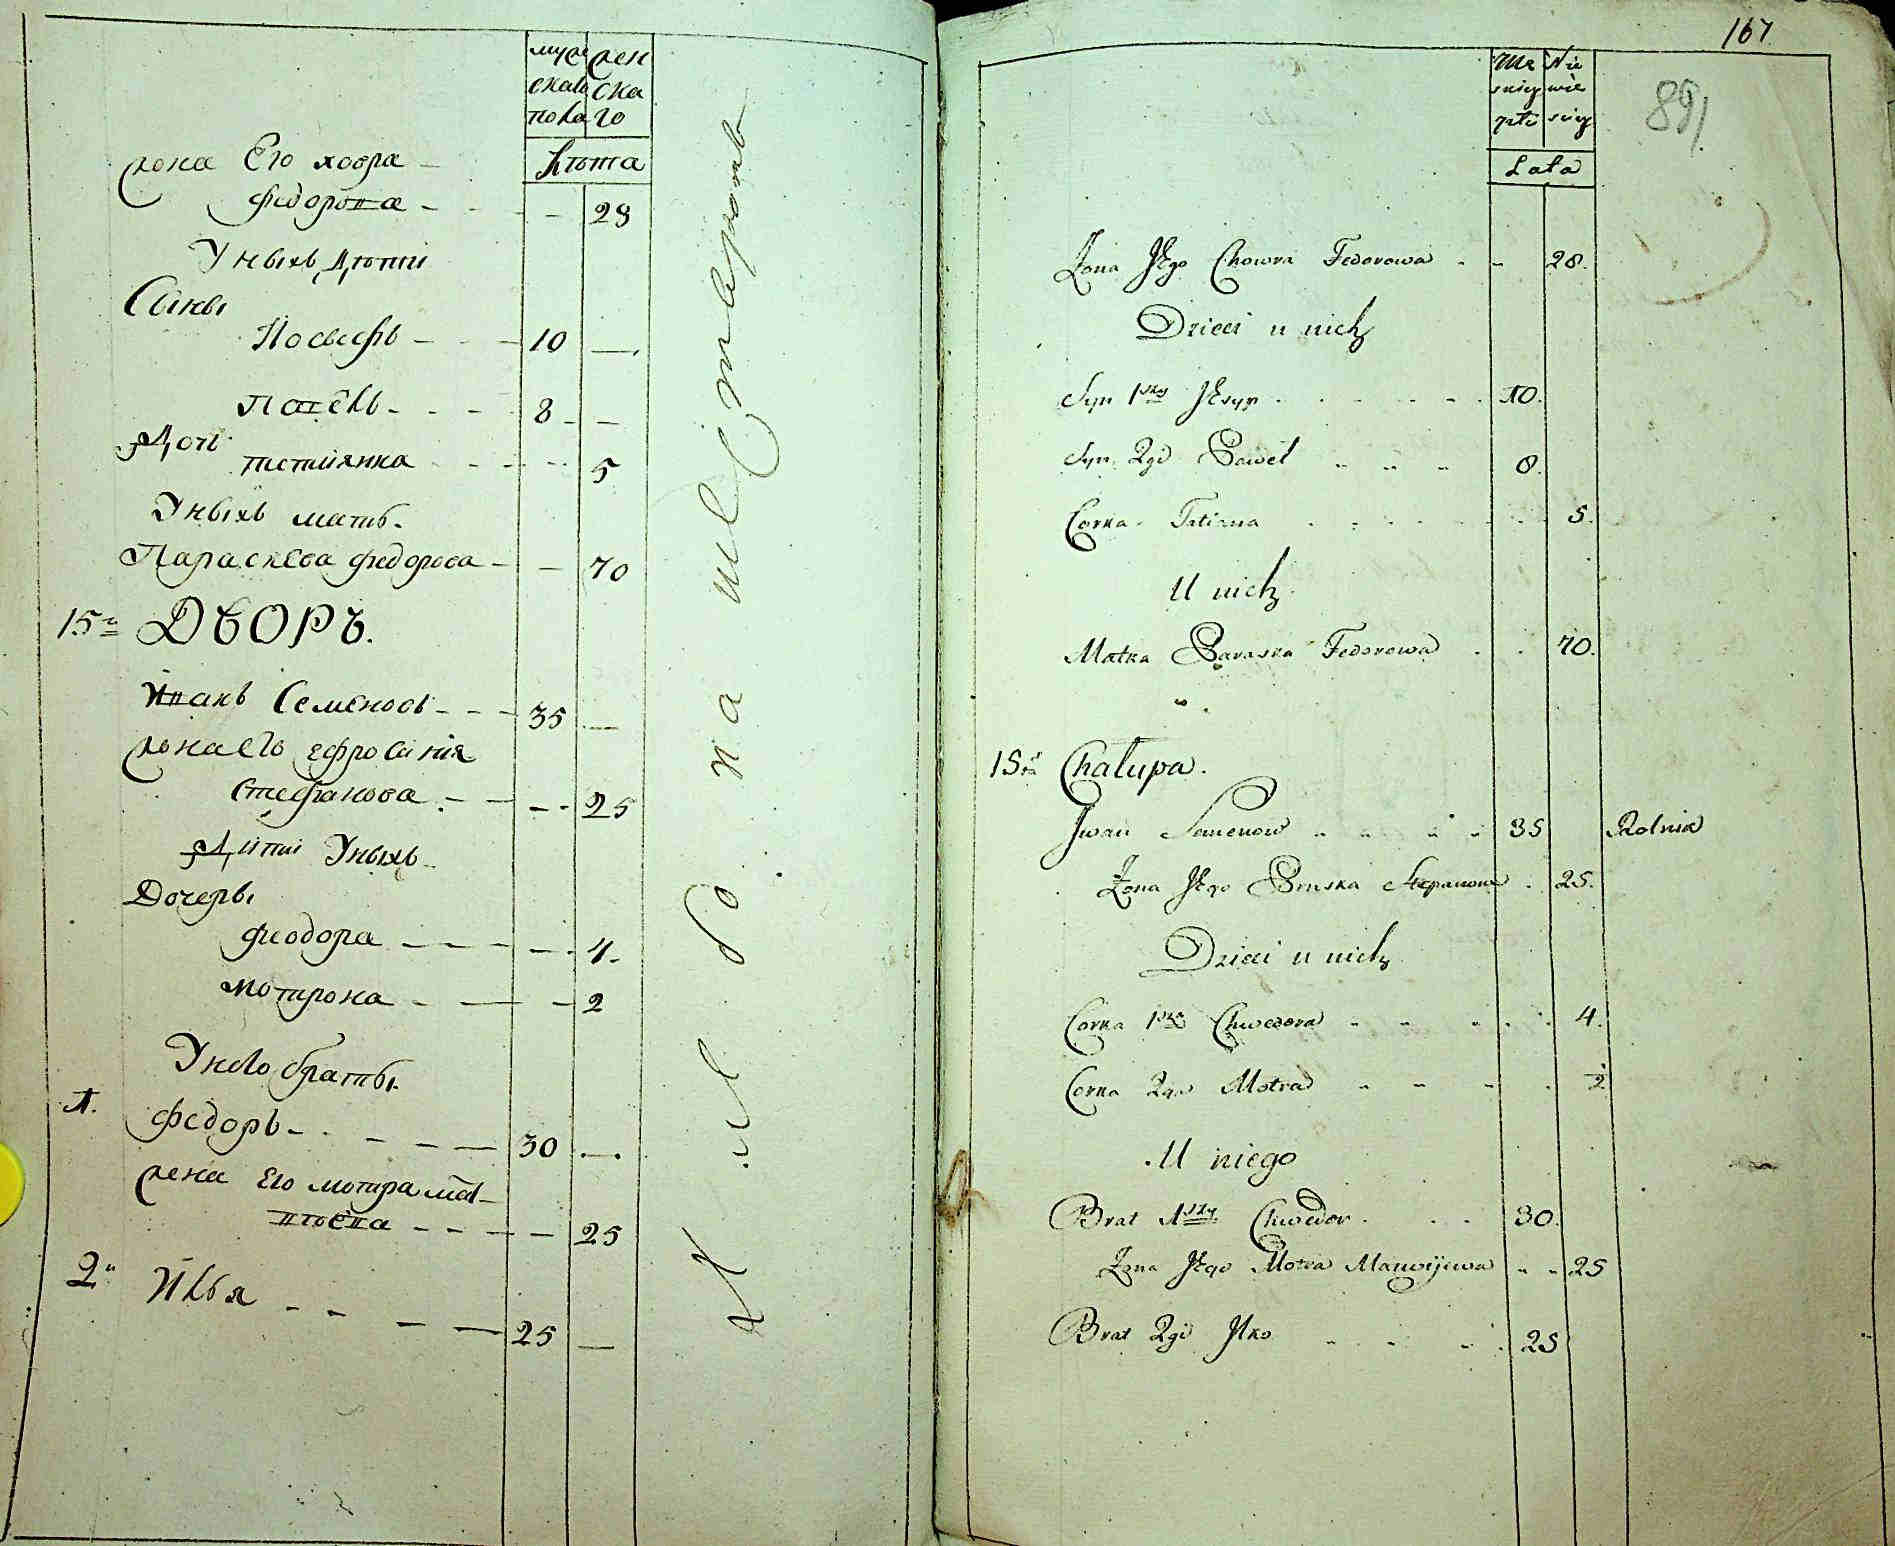 мужескаго пола
женскаго
Лѣта
жена Его ховра
федорова - - - 28
У ныхъ дѣти
Сыны
Иосифъ - - - 10 —
Павелъ - - - 8 - —
Дочь
татиянна - - - 5
У ныхъ мать.
Параскева федорова - — 70
15й ДВОРЪ.
Иванъ Семеновъ - - - 35 —
жена его ефросинія
Стефанова - - - - 25
Діти У ныхъ
Дочеры
феодора - - - - 4.
мотрона - — - 2
У него браты
1. федоръ - - - - — 30 —
жена Его мотра мат-
вѣева - - - - — 25
2й Илья - - - — 25 —
167
891
Męskiey płci
Niewieściey
Lata
Żona Jego Chowra Fedorowa - - 28.
Dzieci u nich
Syn 1szy Jozyp . . . . . 10.
Syn 2gi Paweł . . . 8.
Corka Tatiana . . . . . 5.
U nich
Matka Paraska Fedorowa . . 70.
15ta Chałupa.
Jwan Semenow . . . . 35 Rolnik
Żona Jego Pruska Stepanowa . 25.
Dzieci u nich
Corka 1sza Chwedora . . . . . 4.
Corka 2ga Motra . . . . 2.
U niego
Brat 1szy Chwedor . . . 30.
Żona Jego Motra Matwijewa . . 25
Brat 2gi Jlko . . . . 25